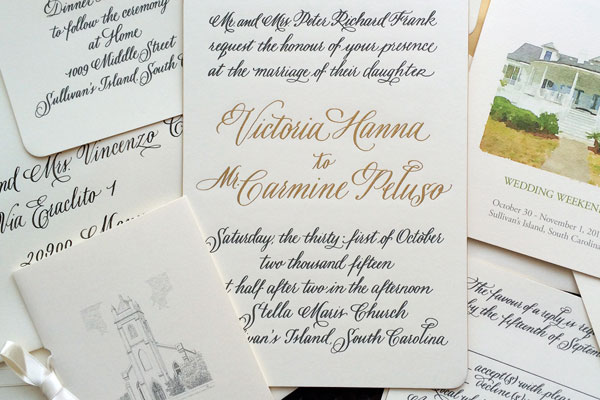 Dinner
to follow the ceremony
at Home
1009 Middle Street
Sullivan's Island, South
and Mrs. Vincenzo
Via Eraclito 1
20900
Mr. and Mrs. Peter Richard Frank
request the honour of your presence
at the marriage of their daughter
Victoria Hanna
to
Mr. Carmine Peluso
Saturday, the thirty-first of October
two thousand fifteen
at half after two in the afternoon
Stella Maris Church
Sullivan's Island, South Carolina
WEDDING WEEKEN
October 30 - November 1, 201
Sullivan's Island, South Carolina
The favour of a reply is req
by the fifteenth of Septem
accept(s) with pleas
decline(s)